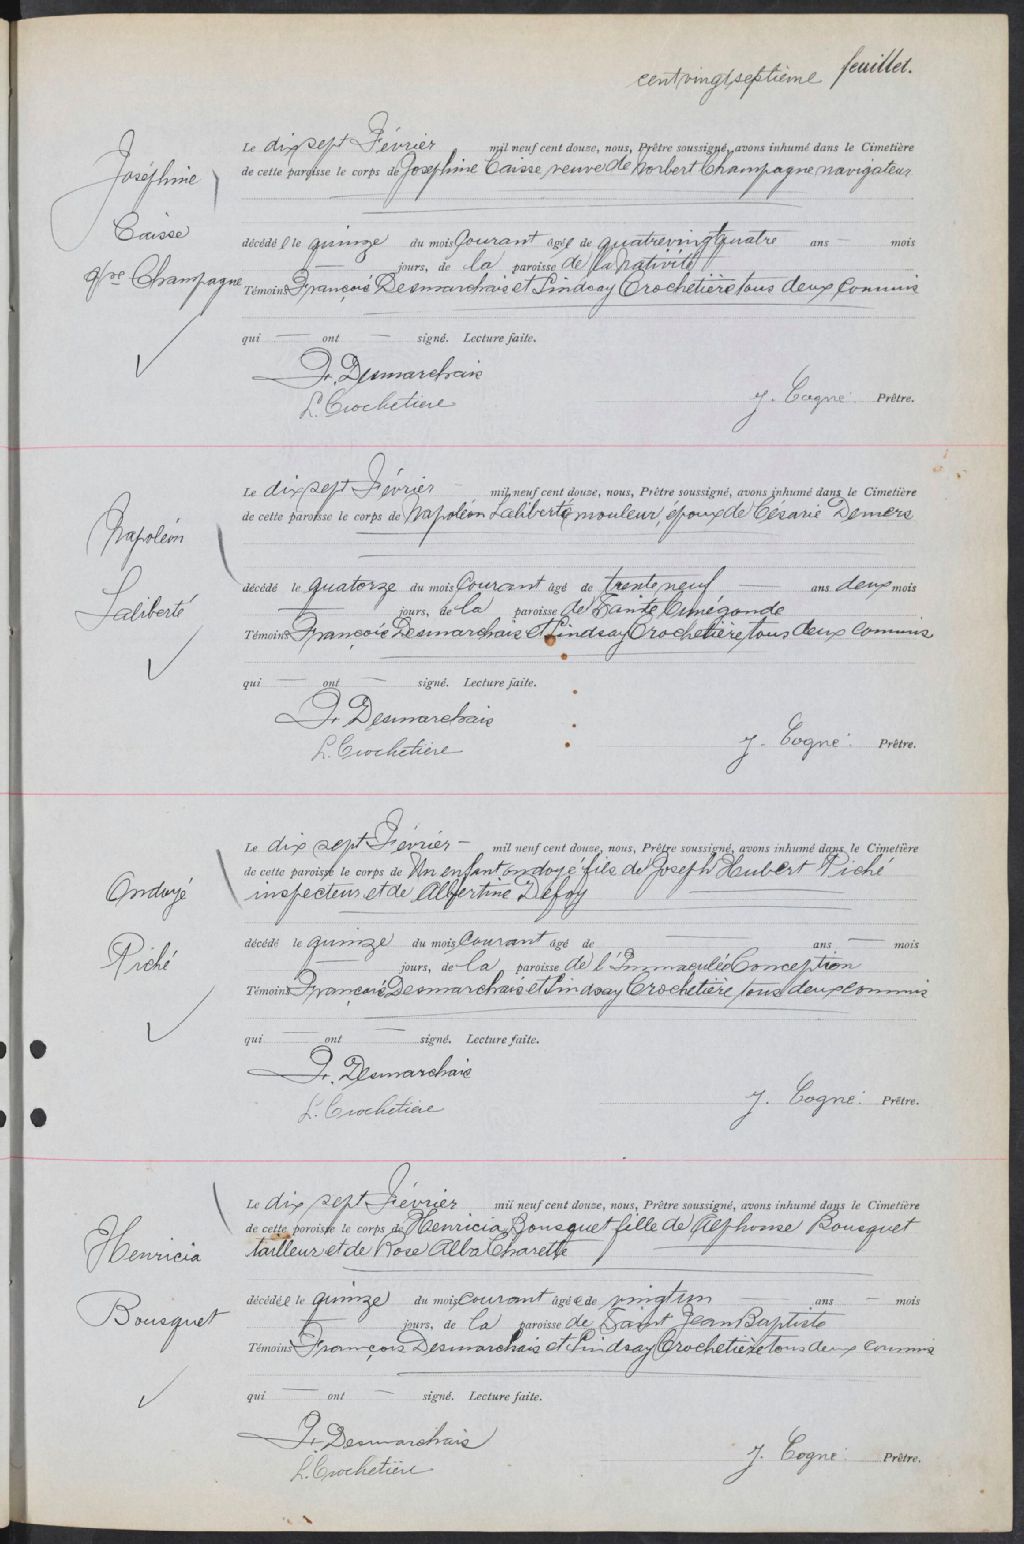 cent vingt septième feuillet.
Joséphine
Caisse
Vve Champagne
Le dix sept Février mil neuf cent douze, nous, Prêtre soussigné, avons inhumé dans le Cimetière
de cette paroisse le corps de Josephine Caisse, veuve de Norbert Champagne, navigateur
décédée le quinze du mois Courant âgée de quatrevingtquatre ans — mois
— jours, de la paroisse de la Nativité
Témoins François Desmarchais et Lindsay Crochetière tous deux commis
qui — ont — signé. Lecture faite.
Fr. Desmarchais
L. Crochetiere
J. Cogné. Prêtre.
Napoléon
Laliberté
Le dix sept Février mil neuf cent douze, nous, Prêtre soussigné, avons inhumé dans le Cimetière
de cette paroisse le corps de Napoléon Laliberté, mouleur, époux de Césarie Demers
décédé le quatorze du mois Courant âgé de trente neuf — ans deux mois
— jours, de la paroisse de Sainte Cunégonde
Témoins François Desmarchais et Lindsay Crochetière, tous deux commis
qui — ont — signé. Lecture faite.
Fr Desmarchais
L. Crochetière
J. Cogné. Prêtre.
Ondoyé
Piché
Le dix sept Février — mil neuf cent douze, nous, Prêtre soussigné, avons inhumé dans le Cimetière
de cette paroisse le corps de Un enfant ondoyé fils de Joseph Hubert Piché
inspecteur, et de Albertine Defoy
décédé le quinze du mois Courant âgé de — ans — mois
— jours, de la paroisse de l'Immaculée Conception
Témoins François Desmarchais et Lindsay Crochetière, tous deux commis
qui — ont — signé. Lecture faite.
Fr. Desmarchais
L. Crochetière
J. Cogné. Prêtre.
Henricia
Bousquet
Le dix sept Février mil neuf cent douze, nous, Prêtre soussigné, avons inhumé dans le Cimetière
de cette paroisse le corps de Henricia Bousquet fille de Alphonse Bousquet
tailleur et de Rose Alba Charette
décédée le quinze du mois courant âgée de vingt un — ans — mois
— jours, de la paroisse de Saint Jean Baptiste
Témoins François Desmarchais et Lindsay Crochetière tous deux commis
qui — ont — signé. Lecture faite.
Fr. Desmarchais
L. Crochetière
J. Cogné. Prêtre.